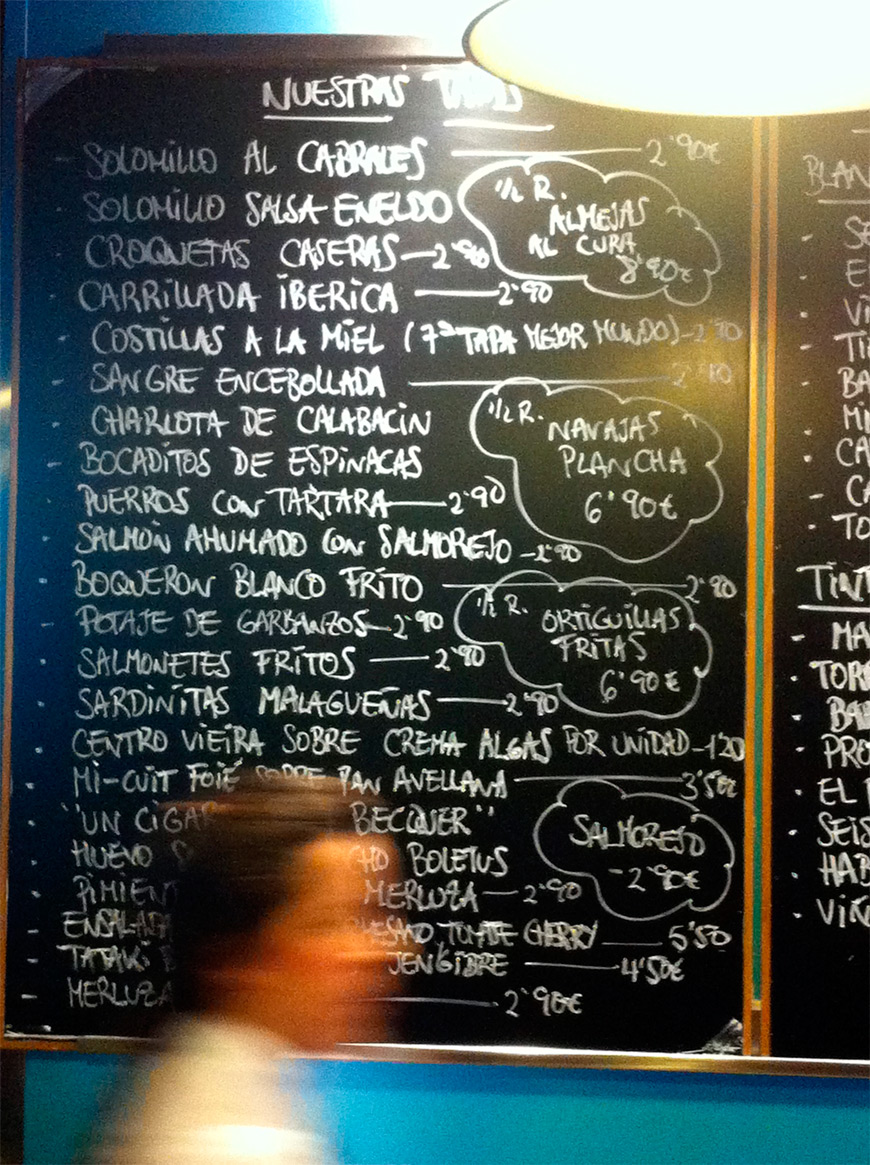 NUESTRAS TAPAS
- SOLOMILLO AL CABRALES — 2'90€
- SOLOMILLO SALSA ENELDO
- CROQUETAS CASERAS — 2'90
- CARRILLADA IBERICA — 2'90
- COSTILLAS A LA MIEL (7ª TAPA MEJOR MUNDO) - 2'90
- SANGRE ENCEBOLLADA — 2'90
- CHARLOTA DE CALABACIN
- BOCADITOS DE ESPINACAS
- PUERROS CON TARTARA — 2'90
- SALMON AHUMADO CON SALMOREJO - 2'90
- BOQUERON BLANCO FRITO — 2'90
- POTAJE DE GARBANZOS - 2'90
- SALMONETES FRITOS — 2'90
- SARDINITAS MALAGUEÑAS — 2'90
- CENTRO VIEIRA SOBRE CREMA ALGAS POR UNIDAD - 1'20
- MI-CUIT FOIE SOBRE PAN AVELLANA — 3'50€
- "UN CIGAR BECQUER"
- HUEVO BOLETUS
- PIMIEN MERLUZA — 2'90
- ENSALADA TOMATE CHERRY — 5'50
- TATAKI JENGIBRE — 4'50€
- MERLUZA — 2'90€
1/2 R.
ALMEJAS
AL CURA
8'90€
1/2 R.
NAVAJAS
PLANCHA
6'90€
1/2 R.
ORTIGUILLAS
FRITAS
6'90€
SALMOREJO
- 2'90€
BLAN
- SE
- E
- VI
- TI
- BA
- MI
- CA
- CA
- TO
TINT
- MA
- TOR
- BA
- PRO
- EL
- SEIS
- HAB
- VIÑ